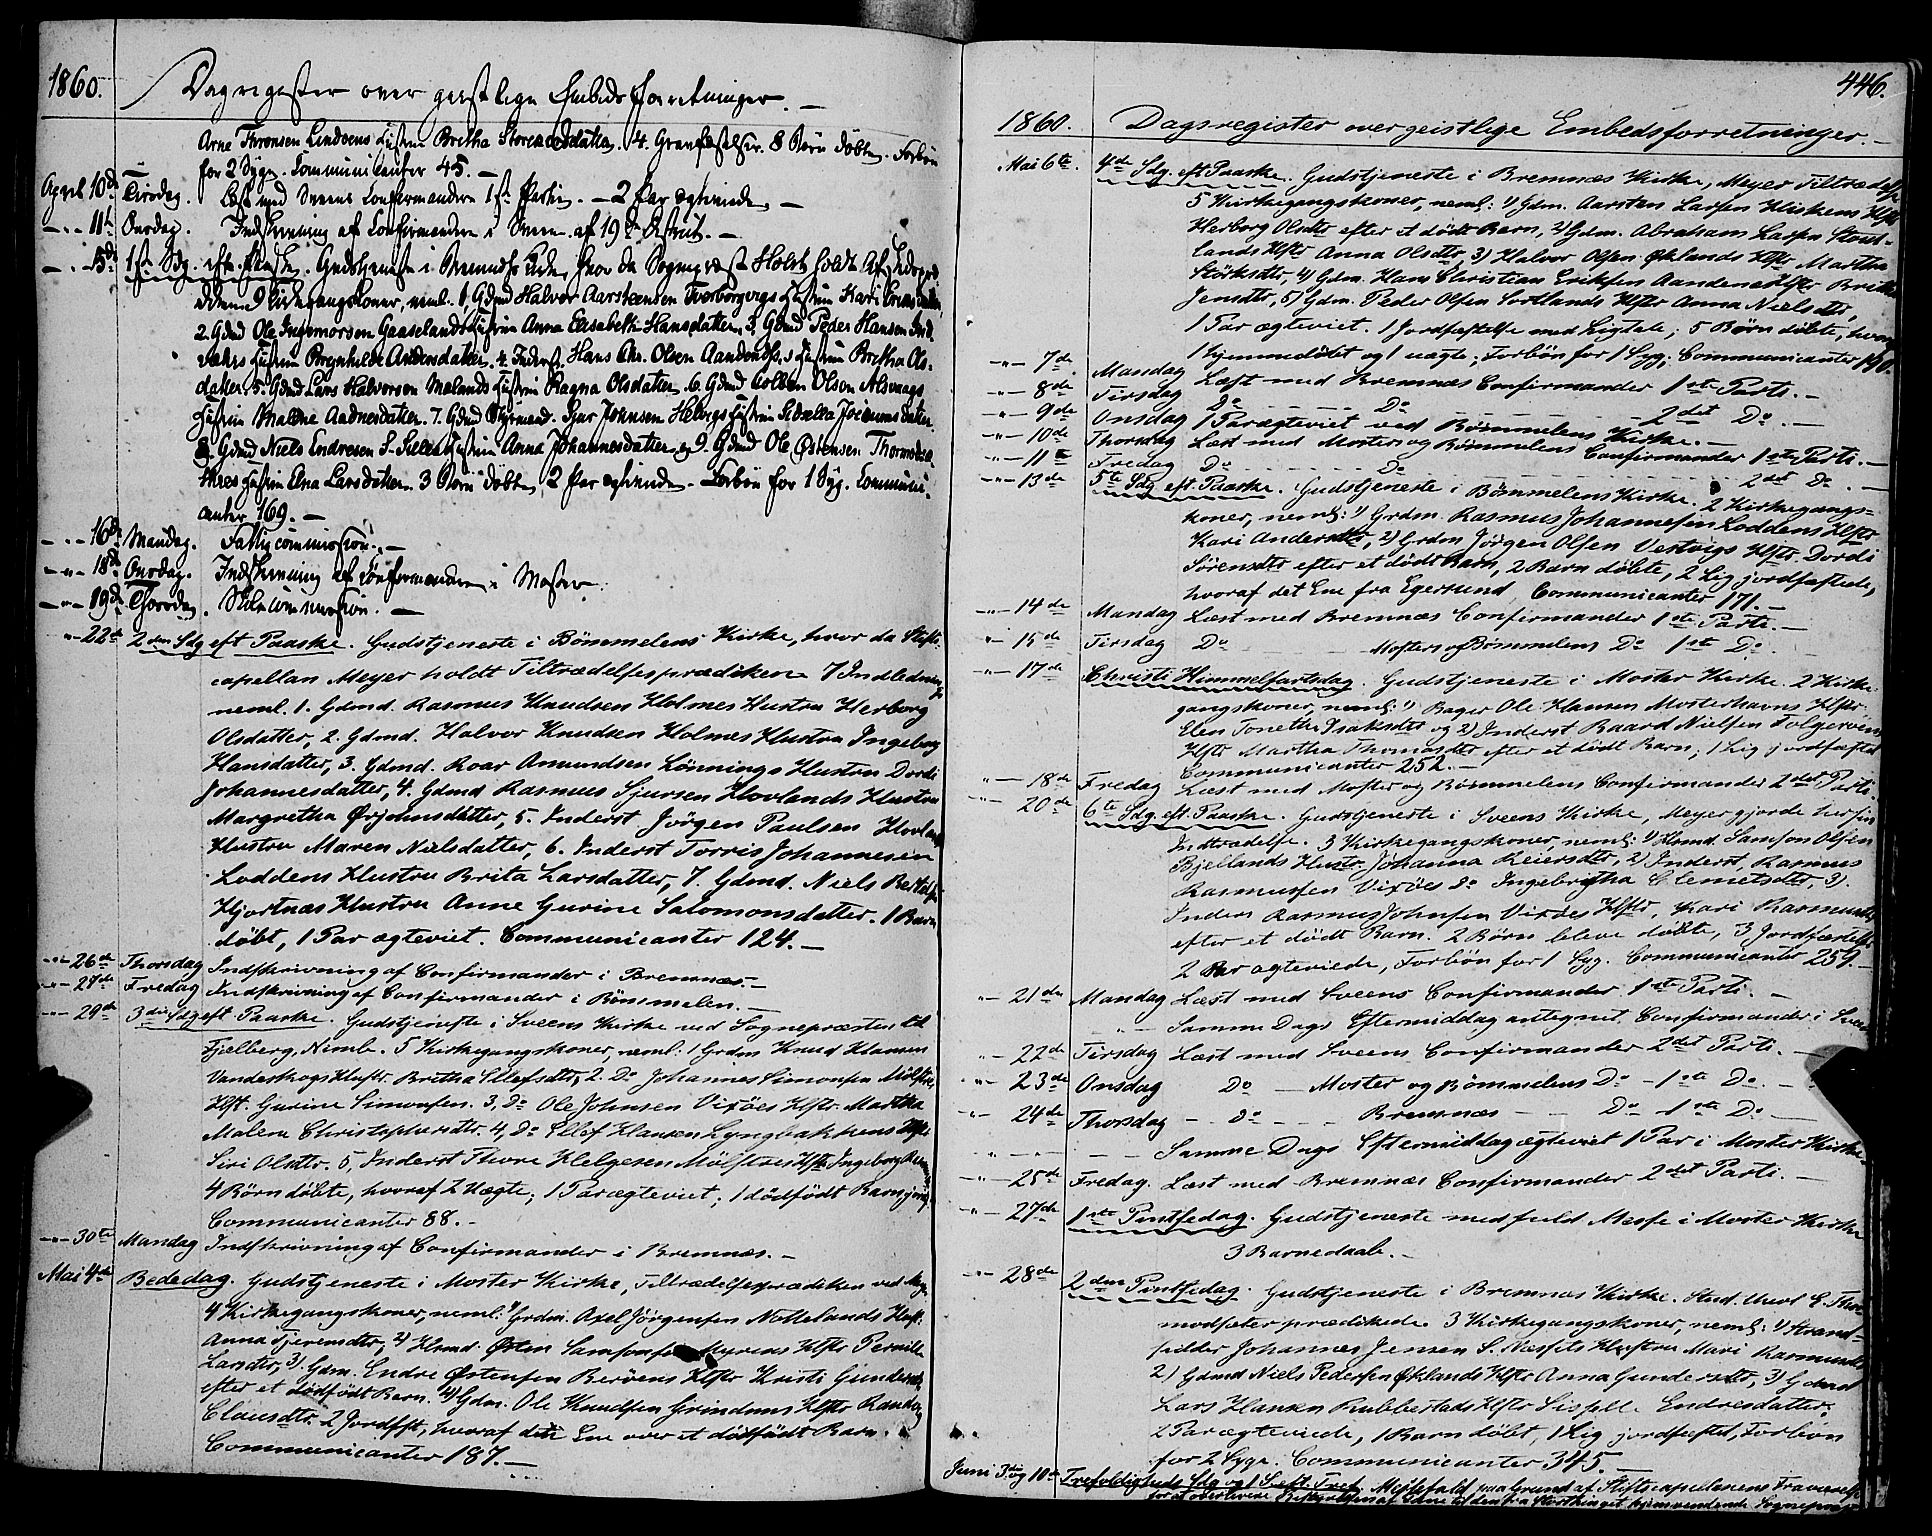 1860. Dagregister over geistlige Embedsforretninger. —
Arne Thronsen Lindøens Hustru Bretha Storcardsdatter. 4. Gravfæstelser. 8 Børn döbte. Forbön
for 2 Syge. Communicanter 45. —
April 10de Tirsdag. Læst med Sveens Confirmander 1ste Parti. — 2 Par ægteviede —
— " — 11te Onsdag. Indskrivning af Confirmander i Sveen af 19de District. —
— " — 15de 1ste Sdg. eft. Paaske. Gudstjeneste i Bremnæs Kirke, hvor da Sognepræst Holst holdt Afskeds
9 Kirkegangskoner, neml. 1. Gdmd Halvor Aarstensen Tverborgvigs Hustru Kari
2. Gdmd Ole Ingemorsen Gaaselands Hustru Anna Elisabeth Hansdatter, 3. Gdmd Peder Hansen
Hustru Brynhilde Andersdatter. 4. Inderst Hans Chr. Olsen Aandenæs's Hustru Bretha Ols-
datter. 5. Gdmd Lars Halvorsen Mælands Hustru Ragna Olsdatter. 6. Gdmd Colben Olsen Alsvaags
Hustru Malene Aadnesdatter. 7. Gdmd Styrmand Sjur Johnsen Helvigs Hustru Sidsella
8. Gdmd Niels Endresen S. Selles Hustru Anna Johannesdatter og 9. Gdmd Ole Østensen
Hustru Elna Larsdatter. 3 Börn döbte, 2 Par ægteviede. Forbön for 1 Syg. Communi-
canter 169. —
— " — 16de Mandag. Fattigcommission. —
— " — 18de Onsdag. Indskrivning af Confirmander i Moster.
— " — 19de Thorsdag. Skolecommission. —
— " — 22de 2den Sdg eft Paaske. Gudstjeneste i Bömmelens Kirke, hvor da Stifts-
capellan Meyer holdt Tiltrædelsesprædiken 7 Indledning
neml. 1. Gdmd. Rasmus Knudsen Holmes Hustru Herborg
Olsdatter, 2. Gdmd. Halvor Knudsen Holmes Hustru Ingeborg
Hansdatter, 3. Gdmd. Roar Amundsen Lönnings Hustru Dordi
Johannesdatter, 4. Gdmd Rasmus Sjursen Hovlands Hustru
Margretha Ørjohnsdatter, 5. Inderst Jörgen Paulsen Hovlands
Hustru Maren Nielsdatter, 6. Inderst Torris Johannesen
Loddens Hustru Brita Larsdatter, 7. Gdmd. Niels
Hjortnæs Hustru Anne Gurine Salomonsdatter. 1 Barn
döbt, 1 Par ægteviet. Communicanter 124. —
— " — 26de Thorsdag Indskrivning af Confirmander i Bremnæs. —
— " — 27de Fredag Indskrivning af Confirmander i Bömmelen. —
— " — 29de 3die Sdg eft Paaske. Gudstjeneste i Sveens Kirke ved Sognepræsten til
Fjelberg, Nimb. 5 Kirkegangskoner, neml: 1 Grdm Knud Hansen
Vandeskogs Hustr. Britha Ellefsdtr, 2. Do Johannes Simonsen
Hst. Gurine Simonsen. 3, Do Ole Johnsen Vixöes Hstr. Martha
Malene Christophersdtr. 4, Do Ellef Hansen Lyngbakkens Hstr
Siri Olsdtr. 5, Inderst Thore Helgesen Mölstres Hstr Ingeborg
4 Börn döbte, hvoraf 2 Uægte; 1 Par ægteviet; 1 dödfödt Barn
Communicanter 88. —
— " — 30te Mandag Indskrivning af Confirmander i Bremnæs. —
Mai 4de Bededag. Gudstjeneste i Moster Kirke, Tiltrædelsesprædiken ved
4 Kirkegangskoner, neml: 1) Grdm. Axel Jörgensen Nottelands Hust:
Anna Tjerensdtr, 2) Hmd. Østen Samsonsen Myrens Hstr Pernille
Larsdtr, 3) Gdm. Endre Østensen Berøens Hstr Kristi
efter et dödfödt Barn. 4) Gdm. Ole Knudsen Grindens Hstr Randi
Clausdtr. 2 Jordfst, hvoraf det Ene over et dödfödt Barn.
Communicanter 187. —
446.
1860. Dagsregister over geistlige Embedsforretninger. —
Mai 6te. 4de Sdg. eft Paaske. Gudstjeneste i Bremnæs Kirke, Meyer Tiltrædelse
5 Kirkegangskoner, neml: 1) Gdm. Aarsten Larsen Hiskens Hstr
Herborg Olsdtr efter et dödt Barn, 2) Gdm. Abraham Larsen
lands Hstr Anna Olsdtr, 3) Halvor Olsen Øklands Hstr Martha
Störksdtr, 4) Gdm. Hans Christian Eriksen Aandenæs Hstr Britha
Jensdtr, 5) Gdm. Peder Olsen Sortlands Hstr Anna Nielsdtr,
1 Par ægteviet. 1 Jordfæstelse med Ligtale; 5 Börn döbte, hvoraf
1 hjemmedöbt og 1 uægte; Forbön for 1 Syg; Communicanter 190.
— " — 7de Mandag Læst med Bremnæs Confirmander 1ste Parti. —
— " — 8de Tirsdag Do — Do — 2det Do. —
— " — 9de Onsdag 1 Par ægteviet ved Bömmelens Kirke. —
— " — 10de Thorsdag Læst med Mosters og Bömmelens Confirmander 1ste Parti. —
— " — 11te Fredag Do — Do — 2det Do. —
— " — 13de 5te Sdg eft. Paaske. Gudstjeneste i Bömmelens Kirke. 2 Kirkegangs-
koner, neml: 1) Grdm. Rasmus Johannesen Loddens Hstr
Kari Andersdtr, 2) Grdm Jörgen Olsen Vestvigs Hstr. Dordi
Sörensdtr efter et dödt Barn, 2 Barn döbte, 2 Lig jordfæstede,
hvoraf det Ene fra Egersund, Communicanter 171. —
— " — 14de Mandag Læst med Bremnæs Confirmander 1ste Parti. —
— " — 15de Tirsdag Do Mosters og Bömmelens Do 1ste Do.
— " — 17de Christi Himmelfartsdag. Gudstjeneste i Moster Kirke. 2 Kirke-
gangskoner, neml: 1) Bager Ole Hansen Mosterhavns Hstr.
Elen Tonetha Isaksdtr og 2) Inderst Baard Nielsen Folgerøens
Hstr Martha Thomasdtr efter et dödt Barn; 1 Lig jordfæstet
Communicanter 252. —
— " — 18de Fredag Læst med Moster og Bömmelens Confirmander 2det Parti.
— " — 20de 6te Sdg. eft. Paaske. Gudstjeneste i Sveens Kirke, Meyer gjorde her sin
Indtrædelse. 3 Kirkegangskoner, neml: 1) Hsmd. Samson Olsen
Bjellands Hustr. Johanna Reiersdtr, 2) Inderst, Rasmus
Rasmussen Vixöes Do Ingebrigtha Clemetsdtr, 3)
Inders Rasmus Johnsen Vixöes Hstr, Kari Rasmusdtr
efter et dödt Barn. 2 Börn bleve döbte, 3 Jordfæstelser
2 Par ægteviede, Forbön for 1 Syg. Communicanter 259. —
— " — 21de Mandag Læst med Sveens Confirmander 1ste Parti. —
— " — Samme Dags Eftermiddag antegnet Confirmander i Sveen
— " — 22de Tirsdag Læst med Sveens Confirmander 2det Parti. —
— " — 23de Onsdag Do — Moster og Bömmelens Do — 1ste Do. —
— " — 24de Thorsdag — Do — Bremnæs — Do — 1ste Do —
— " — Samme Dags Eftermiddag ægteviet 1 Par i Moster Kirke.
— " — 25de Fredag. Læst med Bremnæs Confirmander 2det Parti. —
— " — 27de 1ste Pintsedag. Gudstjeneste med fuld Messe i Moster Kirke
3 Barnedaab. —
— " — 28de 2den Pintsedag. Gudstjeneste i Bremnæs Kirke. Stud. theol E. Thor-
modsæter prædikede. 3 Kirkegangskoner, neml: 1) Strand-
sidder Johannes Jensen S. Næssets Hustru Mari Rasmusdtr
2) Gdmd Niels Pedersen Øklands Hstr Anna Gundersdtr, 3) Gdmd
Lars Hansen Rubbestads Hstr Sissele Endresdatter;
2 Par ægteviede, 1 Barn döbt, 1 Lig jordfæstet, Forbön
for 2 Syge. Communicanter 345. —
Juni 3die og 10de Trefoldigheds Sdg og 1 S. eft. Tref. Messefald paa Grund af Stiftscapellanens Fraværelse